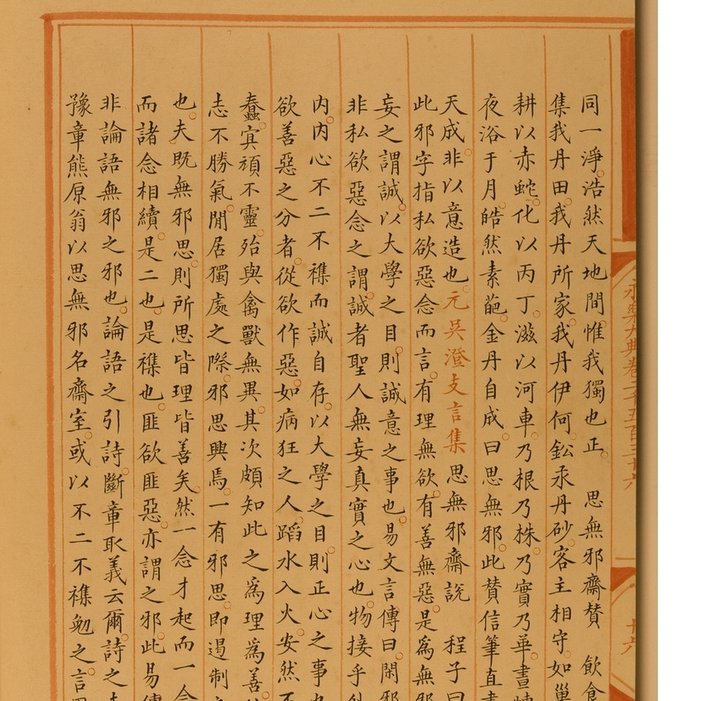 同一淨。浩然天地間。惟我獨也正。 思無邪齋贊 飲食
集我丹田。我丹所家。我丹伊何。鈆汞丹砂。客主相守。如巢
耕以赤蛇。化以丙丁。滋以河車。乃根乃株。乃實乃華。晝
夜浴于月。皓然素葩。金丹自成。曰思無邪。此贊信筆直
天成。非以意造也。元吳澄支言集 思無邪齋說 程子曰
此邪字指私欲惡念而言。有理無欲。有善無惡。是爲無邪
妄之謂誠。以大學之目。則誠意之事也。易文言傳曰。閑邪
非私欲惡念之謂。誠者聖人無妄真實之心也。物接乎
内。内心不二不襍而誠自存。以大學之目。則正心之事
欲善惡之分者。從欲作惡。如病狂之人。蹈水入火。安然不
蠢。㝠頑不靈。殆與禽獸無異。其次頗知此之爲理爲善。
志不勝氣。閒居獨處之際。邪思興焉。一有邪思。即遏制
也。夫既無邪思。則所思皆理皆善矣。然一念才起而一念
而諸念相續。是二也。是襍也。匪欲匪惡。亦謂之邪。此易傳
非論語無邪之邪也。論語之引詩。斷章取義云爾。詩之
豫章熊原翁以思無邪名齋室。或以不二不襍勉之。言
永樂大典卷二千五百三十六
廿六